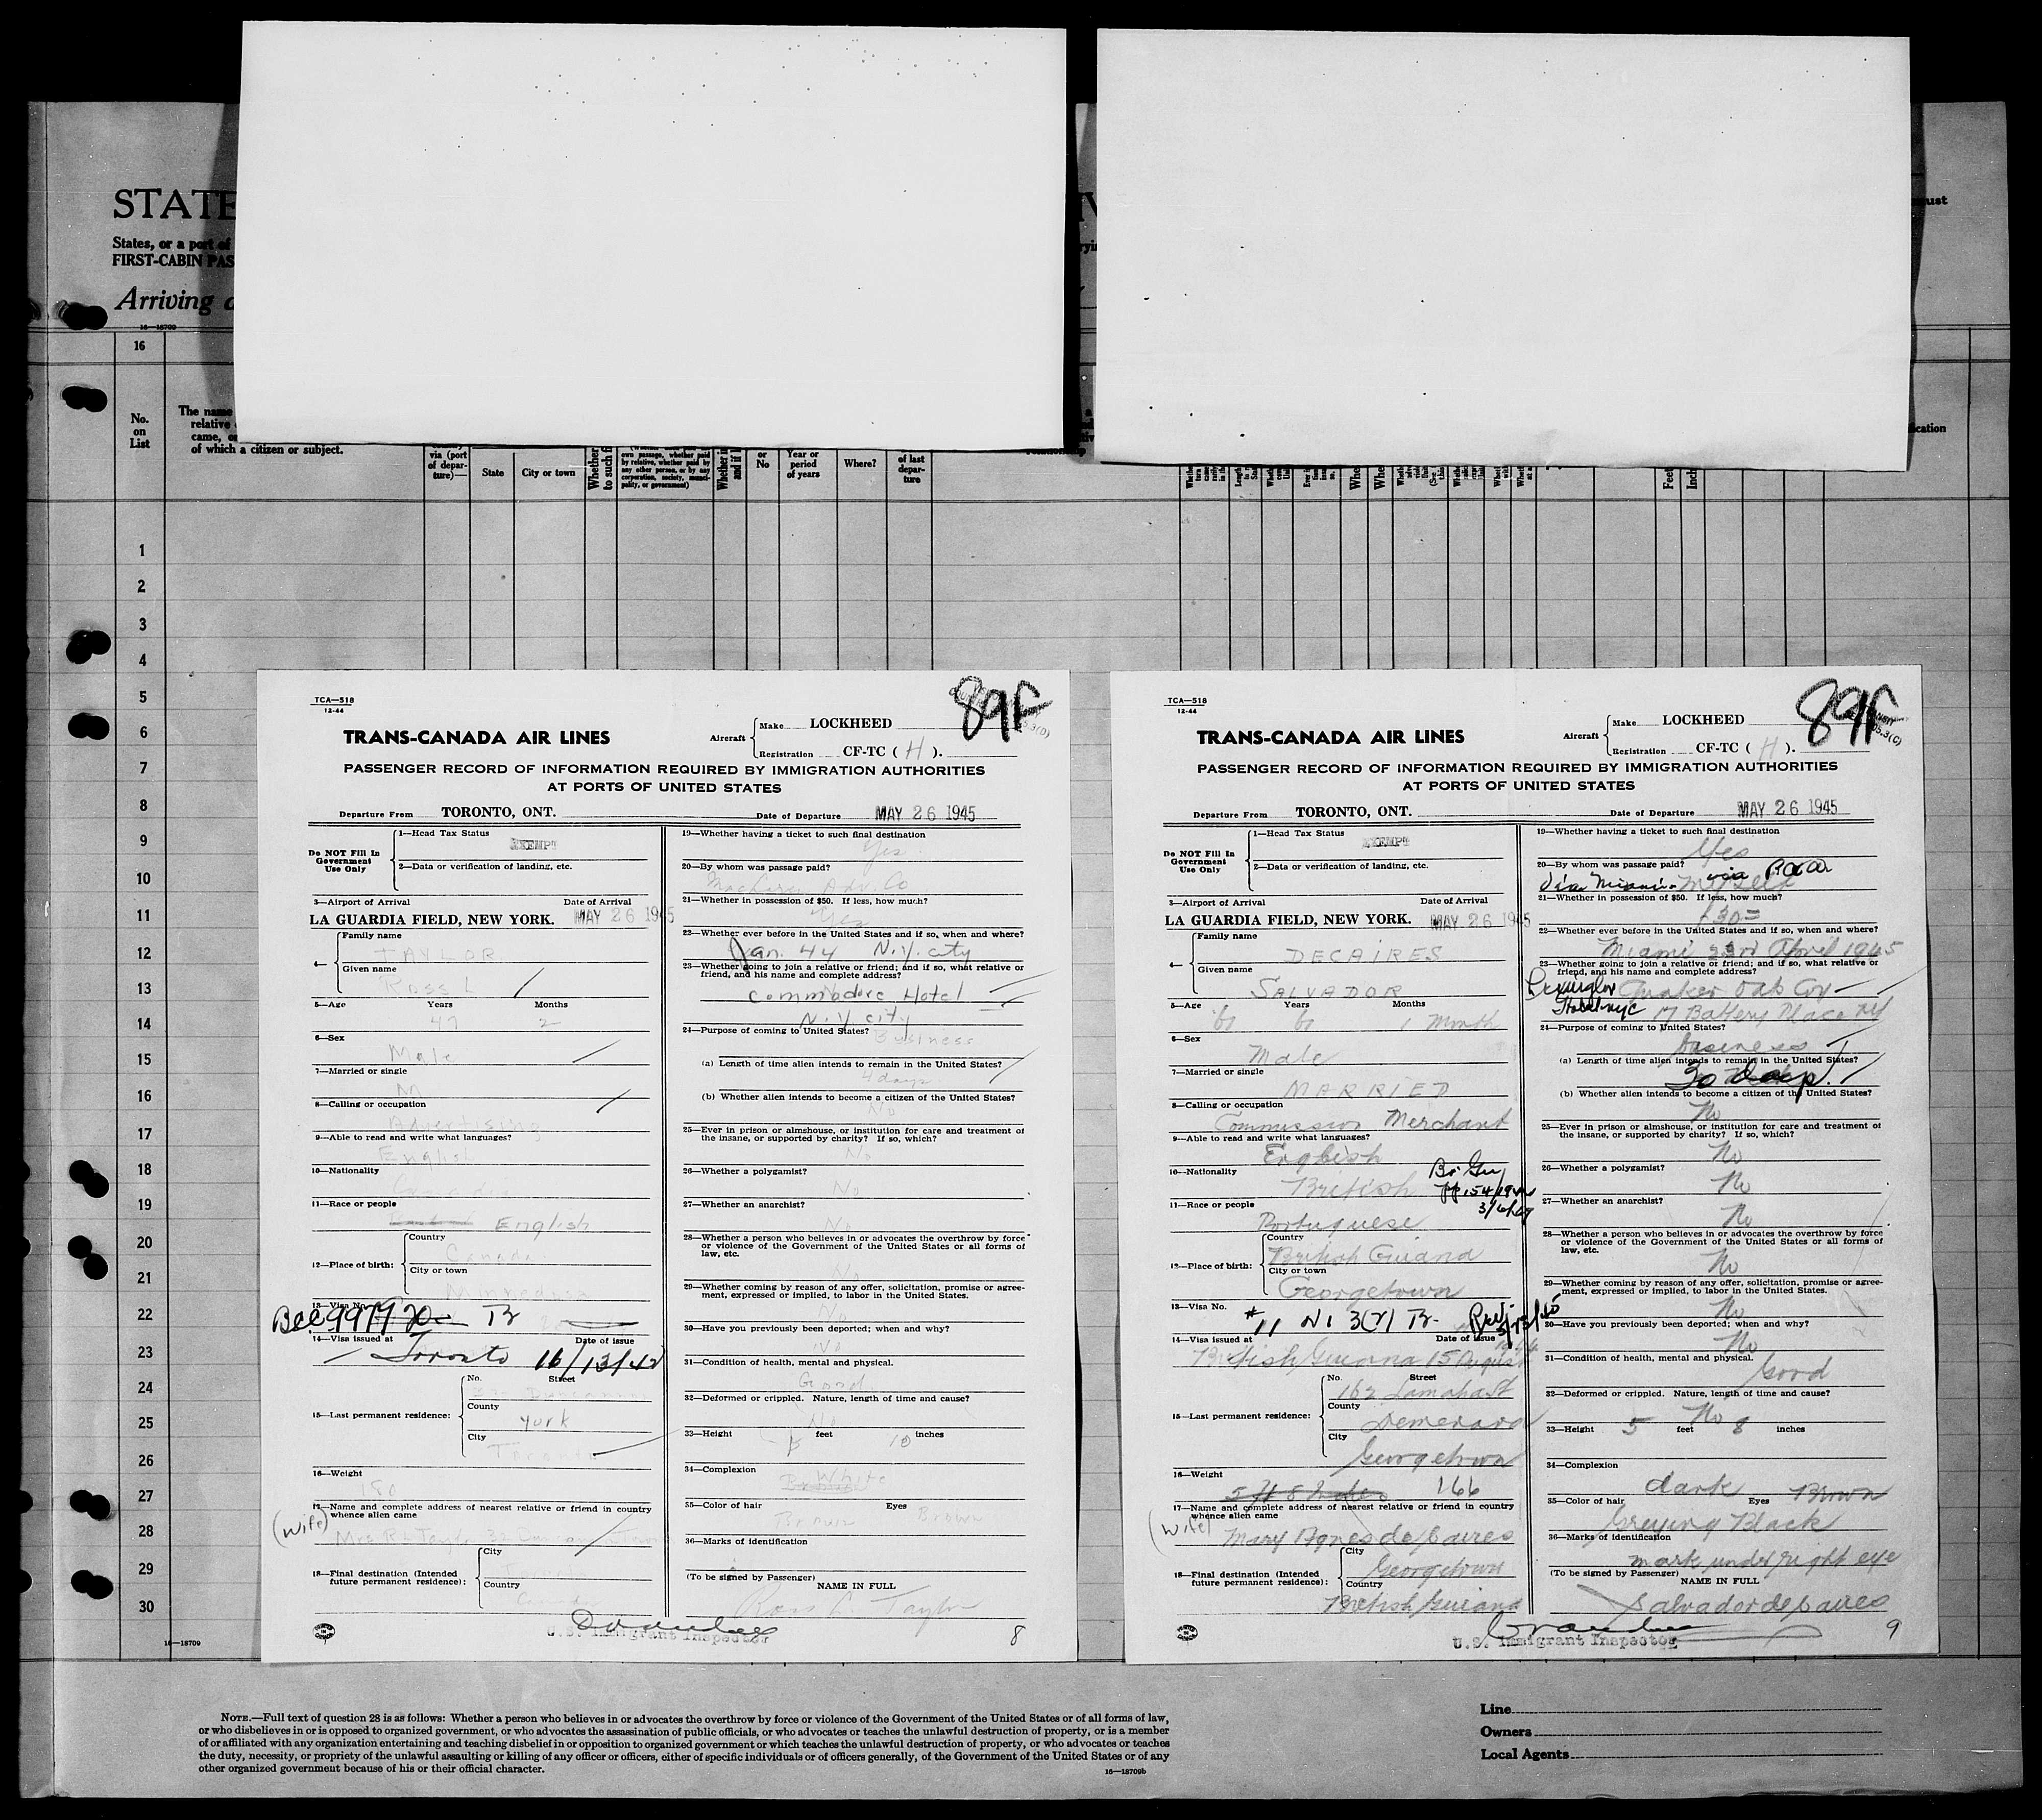 STATE
States, or a port of
FIRST-CABIN PAS
Arriving
16—18709
16
No.
on
List
The name
relative
came, o
of which a citizen or subject.
via (port
of depar-
ture)—
State
City or town
Whether
to such f
own passage, whether paid
by relative, whether paid by
any other person, or by any
corporation, society, munici-
pality, or government)
or
No
Year or
period
of years
Where?
of last
depar-
ture
Feet
1
2
3
4
5
6
7
8
9
10
11
12
13
14
15
16
17
18
19
20
21
22
23
24
25
26
27
28
29
30
16—18709
TCA—518
12-44
89F
TRANS-CANADA AIR LINES
Aircraft
Make LOCKHEED
Registration CF-TC ( H ).
PASSENGER RECORD OF INFORMATION REQUIRED BY IMMIGRATION AUTHORITIES
AT PORTS OF UNITED STATES
Departure From TORONTO, ONT.
Date of Departure MAY 26 1945
Do NOT Fill In
Government
Use Only
1—Head Tax Status EXEMPT
2—Data or verification of landing, etc.
3—Airport of Arrival Date of Arrival
LA GUARDIA FIELD, NEW YORK. MAY 26 1945
4—
Family name
TAYLOR
Given name
Ross L
5—Age Years Months
47 2
6—Sex
Male
7—Married or single
M
8—Calling or occupation
Advertising
9—Able to read and write what languages?
English
10—Nationality
11—Race or people
English
12—Place of birth:
Country
Canada
City or town
Minnedosa
13—Visa No.
14—Visa issued at Date of issue
Toronto
15—Last permanent residence:
No. Street
County
York
City
Toronto
16—Weight
180
17—Name and complete address of nearest relative or friend in country
whence alien came
(Wife)
Mrs R L Taylor
18—Final destination (Intended
future permanent residence):
City
Country
Canada
19—Whether having a ticket to such final destination
Yes
20—By whom was passage paid?
Adv. Co
21—Whether in possession of $50. If less, how much?
Yes
22—Whether ever before in the United States and if so, when and where?
Jan. 44 N.Y. city
23—Whether going to join a relative or friend; and if so, what relative or
friend, and his name and complete address?
Commodore Hotel
N.Y. city
24—Purpose of coming to United States?
Business
(a) Length of time alien intends to remain in the United States?
4 days
(b) Whether alien intends to become a citizen of the United States?
No
25—Ever in prison or almshouse, or institution for care and treatment of
the insane, or supported by charity? If so, which?
No
26—Whether a polygamist?
No
27—Whether an anarchist?
No
28—Whether a person who believes in or advocates the overthrow by force
or violence of the Government of the United States or all forms of
law, etc.
No
29—Whether coming by reason of any offer, solicitation, promise or agree-
ment, expressed or implied, to labor in the United States.
No
30—Have you previously been deported; when and why?
No
31—Condition of health, mental and physical.
Good
32—Deformed or crippled. Nature, length of time and cause?
No
33—Height 5 feet 10 inches
34—Complexion
White
35—Color of hair Eyes
Brown Brown
36—Marks of identification
(To be signed by Passenger)
NAME IN FULL
Ross L Taylor
U.S. Immigrant Inspector
8
TCA—518
12-44
89F
TRANS-CANADA AIR LINES
Aircraft
Make LOCKHEED
Registration CF-TC ( H ).
PASSENGER RECORD OF INFORMATION REQUIRED BY IMMIGRATION AUTHORITIES
AT PORTS OF UNITED STATES
Departure From TORONTO, ONT.
Date of Departure MAY 26 1945
Do NOT Fill In
Government
Use Only
1—Head Tax Status EXEMPT
2—Data or verification of landing, etc.
3—Airport of Arrival Date of Arrival
LA GUARDIA FIELD, NEW YORK. MAY 26 1945
4—
Family name
DECAIRES
Given name
SALVADOR
5—Age Years Months
1 Month
6—Sex
Male
7—Married or single
MARRIED
8—Calling or occupation
Commission Merchant
9—Able to read and write what languages?
English
10—Nationality
British
11—Race or people
Portuguese
12—Place of birth:
Country
British Guiana
City or town
Georgetown
13—Visa No.
14—Visa issued at Date of issue
British Guiana 15 August
15—Last permanent residence:
No. Street
162 Lamaha St
County
Demerara
City
Georgetown
16—Weight
166
17—Name and complete address of nearest relative or friend in country
whence alien came
(Wife)
Mary Agnes de Caires
18—Final destination (Intended
future permanent residence):
City
Georgetown
Country
British Guiana
19—Whether having a ticket to such final destination
Yes
20—By whom was passage paid?
Via Miami Myself via
21—Whether in possession of $50. If less, how much?
22—Whether ever before in the United States and if so, when and where?
Miami 23rd April 1945
23—Whether going to join a relative or friend; and if so, what relative or
friend, and his name and complete address?
Lexington Quaker Oats Coy
Hotel NYC 17 Battery Place NY
24—Purpose of coming to United States?
business
(a) Length of time alien intends to remain in the United States?
30 days
(b) Whether alien intends to become a citizen of the United States?
No
25—Ever in prison or almshouse, or institution for care and treatment of
the insane, or supported by charity? If so, which?
No
26—Whether a polygamist?
No
27—Whether an anarchist?
No
28—Whether a person who believes in or advocates the overthrow by force
or violence of the Government of the United States or all forms of
law, etc.
No
29—Whether coming by reason of any offer, solicitation, promise or agree-
ment, expressed or implied, to labor in the United States.
No
30—Have you previously been deported; when and why?
No
31—Condition of health, mental and physical.
Good
32—Deformed or crippled. Nature, length of time and cause?
No
33—Height 5 feet 8 inches
34—Complexion
dark
35—Color of hair Eyes Brown
Greying Black
36—Marks of identification
mark under right eye
(To be signed by Passenger)
NAME IN FULL
Salvador de Caires
U.S. Immigrant Inspector
9
NOTE.—Full text of question 28 is as follows: Whether a person who believes in or advocates the overthrow by force or violence of the Government of the United States or of all forms of law,
or who disbelieves in or is opposed to organized government, or who advocates the assassination of public officials, or who advocates or teaches the unlawful destruction of property, or is a member
of or affiliated with any organization entertaining and teaching disbelief in or opposition to organized government or which teaches the unlawful destruction of property, or who advocates or teaches
the duty, necessity, or propriety of the unlawful assaulting or killing of any officer or officers, either of specific individuals or of officers generally, of the Government of the United States or of any
other organized government because of his or their official character.
16—18709b
Line
Owners
Local Agents